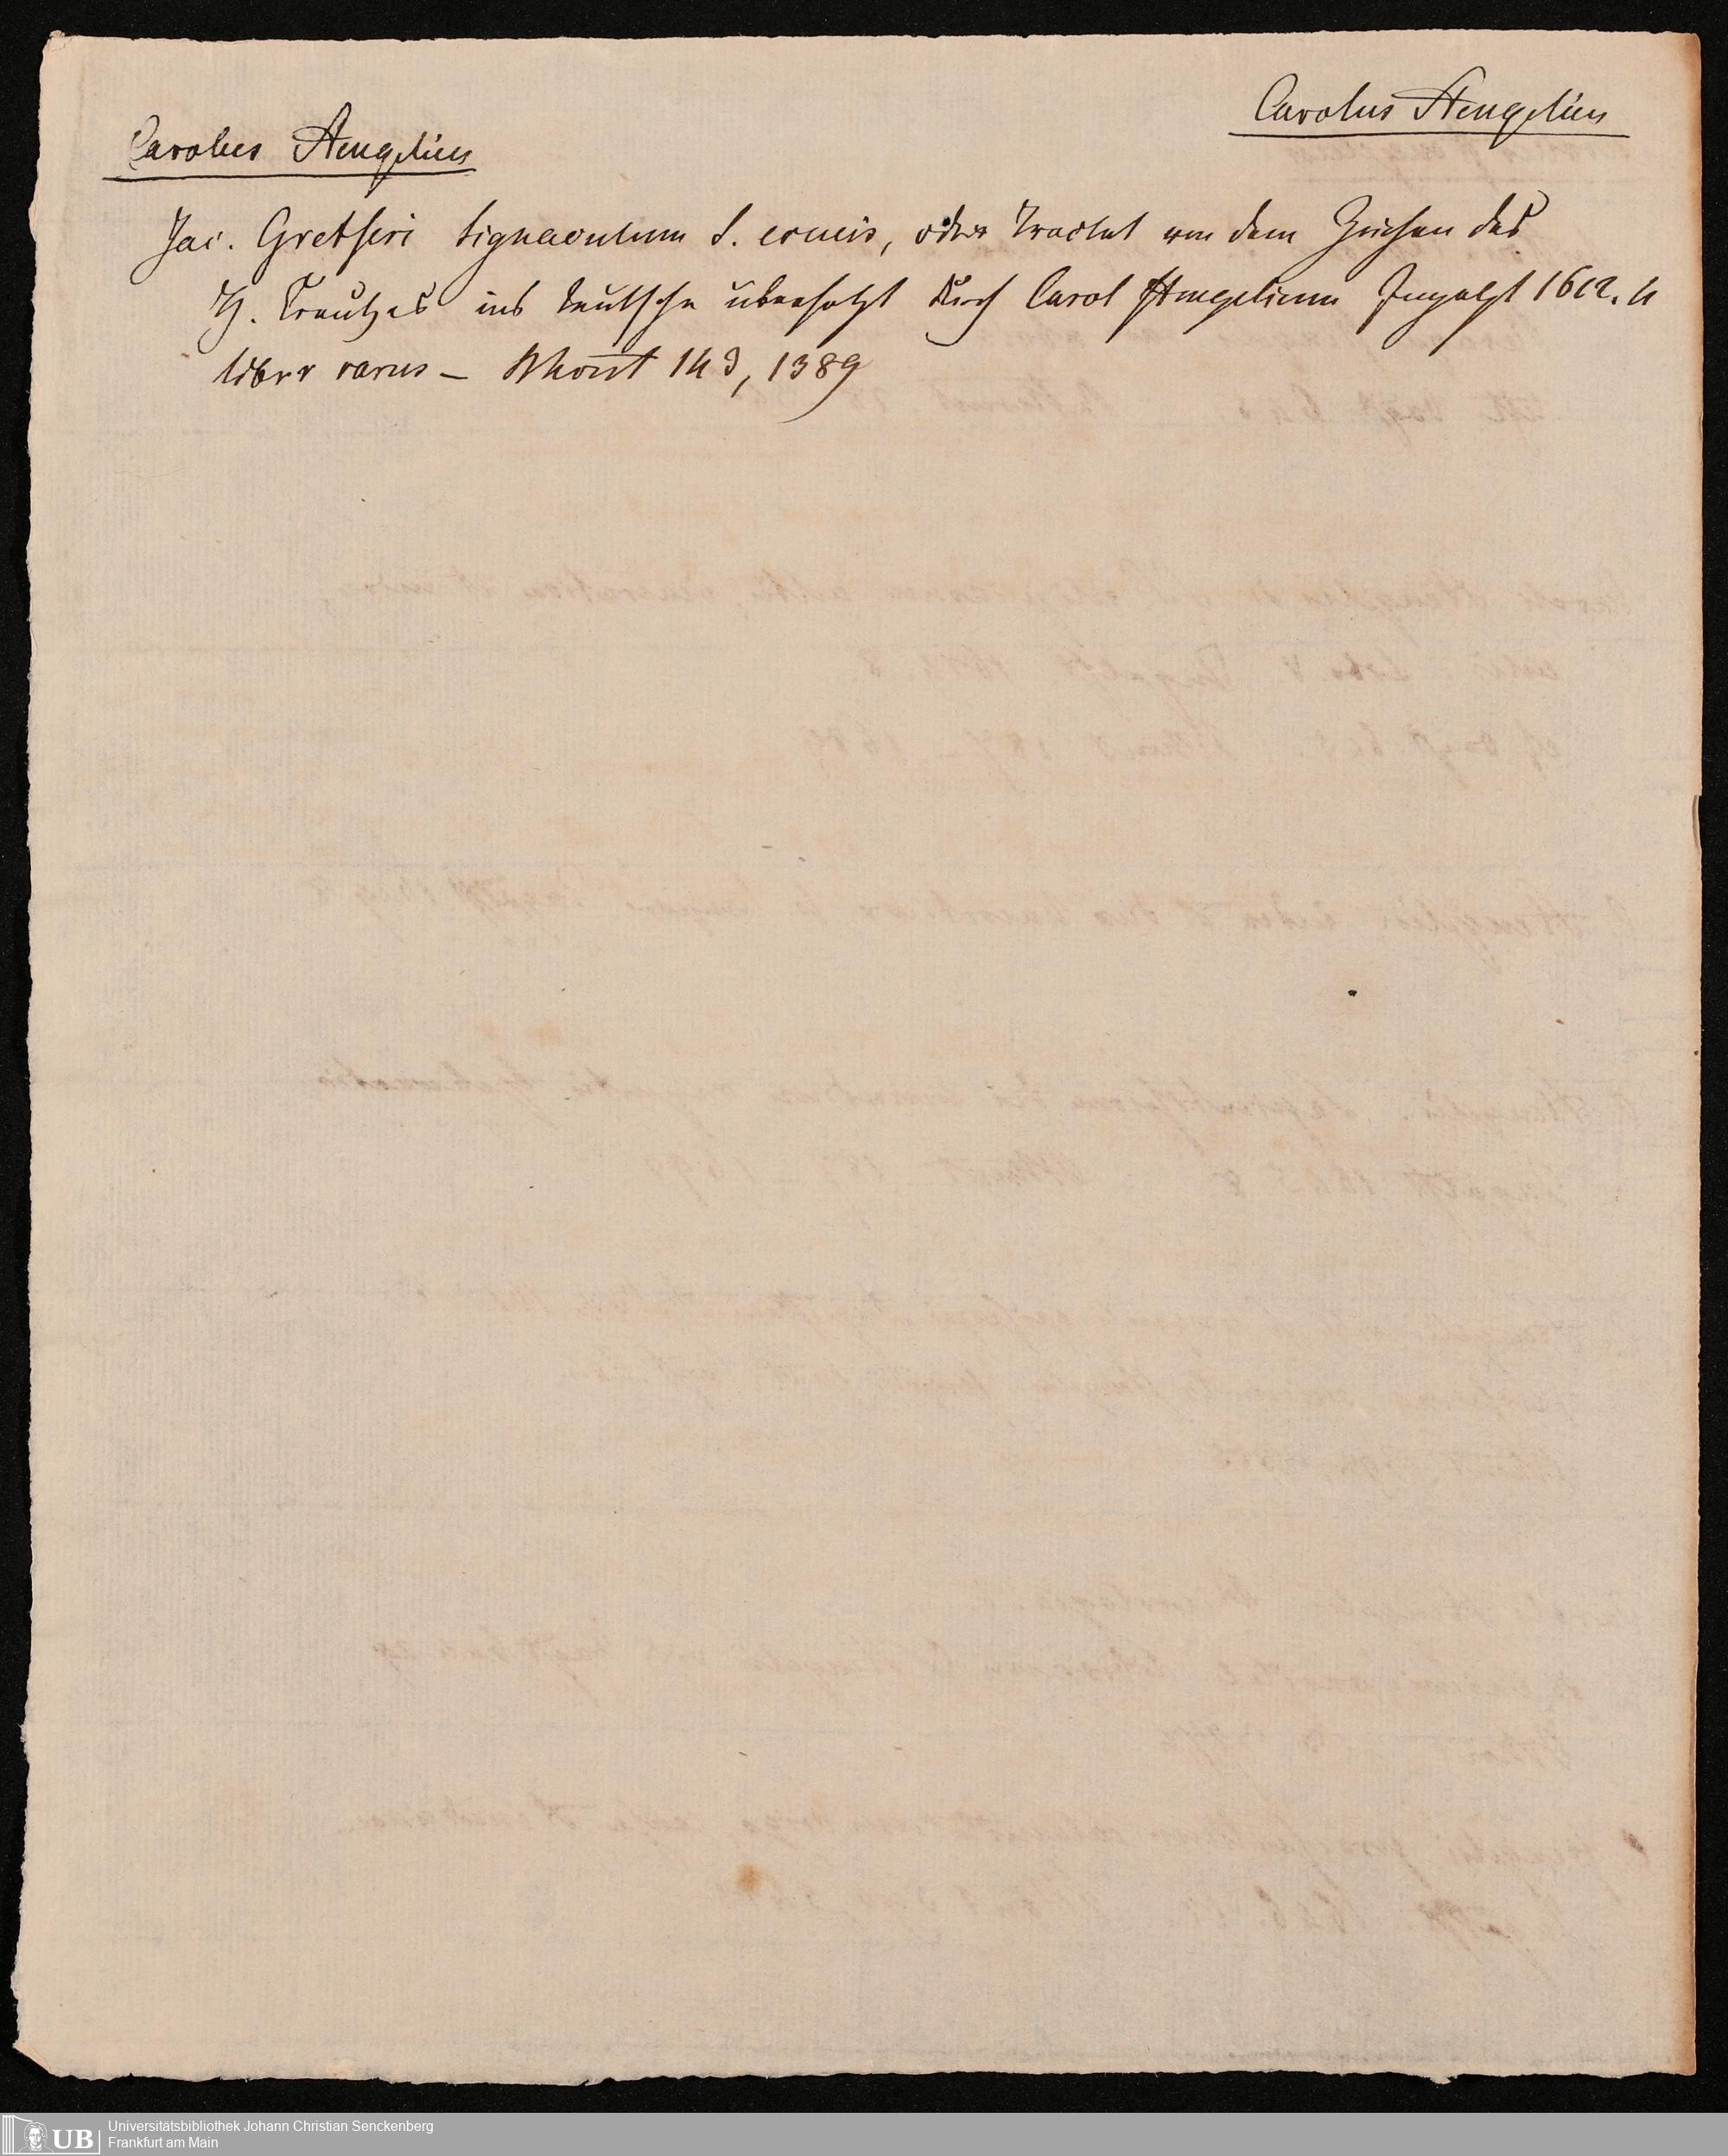 Carolus Stengelius
Carolus Stengelius
Jac. Gretseri signaculum S. crucis, oder Tractat von dem Zeichen des
H. Creutzes ins teutsche übersetzt durch Carol Stengelium Ingolst 1612. 4
liber rarus – 143, 1389
UB Universitätsbibliothek Johann Christian Senckenberg
Frankfurt am Main